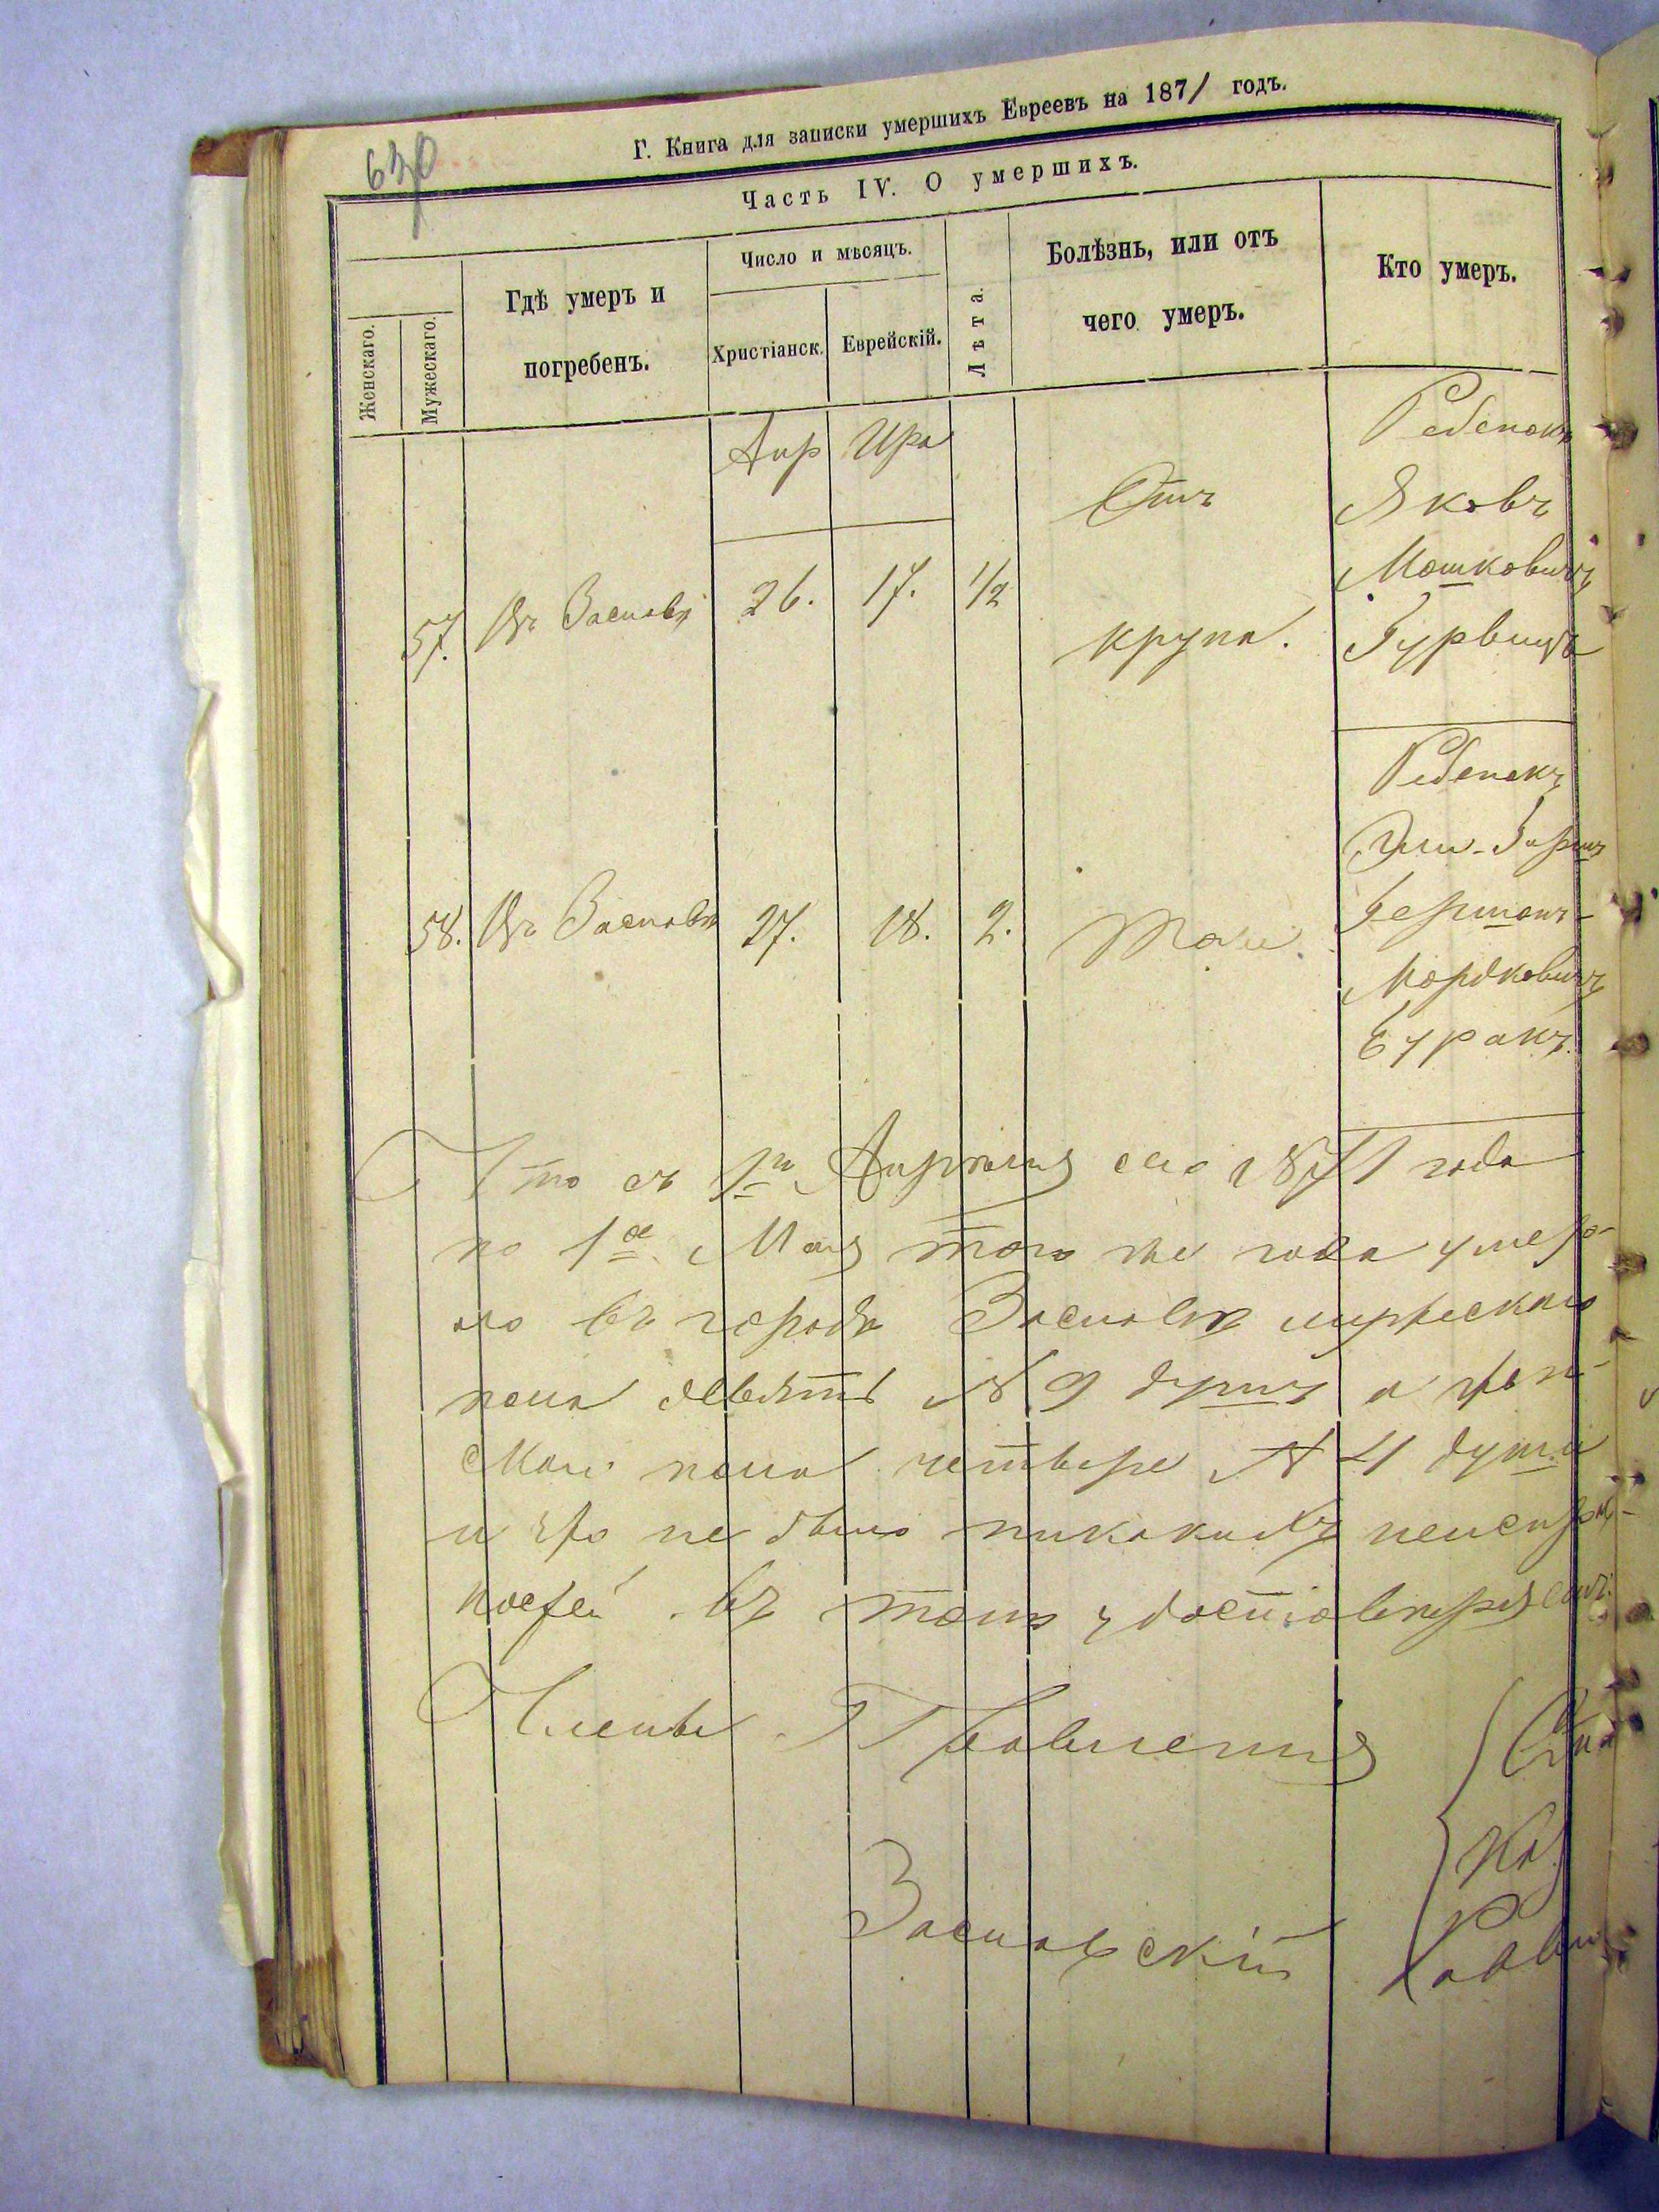 630
Г. Книга для записки умершихъ Евреевъ на 1871 годъ.
Часть IV. О умершихъ.
Женскаго.
Мужескаго.
Гдѣ умеръ и
погребенъ.
Число и мѣсяцъ.
Христіанск.
Еврейскій.
Лѣта.
Болѣзнь, или отъ
чего умеръ.
Кто умеръ.
Апр Ира
57. Въ Заславѣ 26. 17. 1/2
Отъ
крупа.
Ребенокъ
Яковъ
Мошковичъ
Гурвицъ
58. Въ Заславѣ 27. 18. 2.
Тоже
Ребенокъ
Гершонъ
Мордковичъ
Буракъ.
Что съ 1го Апрѣля сего 1871 года
по 1е Мая того же года умер-
ло въ городѣ Заславѣ мужескаго
пола девять № 9 душъ а жен-
скаго пола четыре № 4 души
и что не было никакихъ неисправ-
ностей въ томъ удостовѣряемъ
Члены Правленія
Заславскій
Каз
Равви